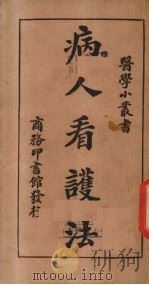 醫學小叢書
病人看護法
商務印書館發行
www.duxiu.com